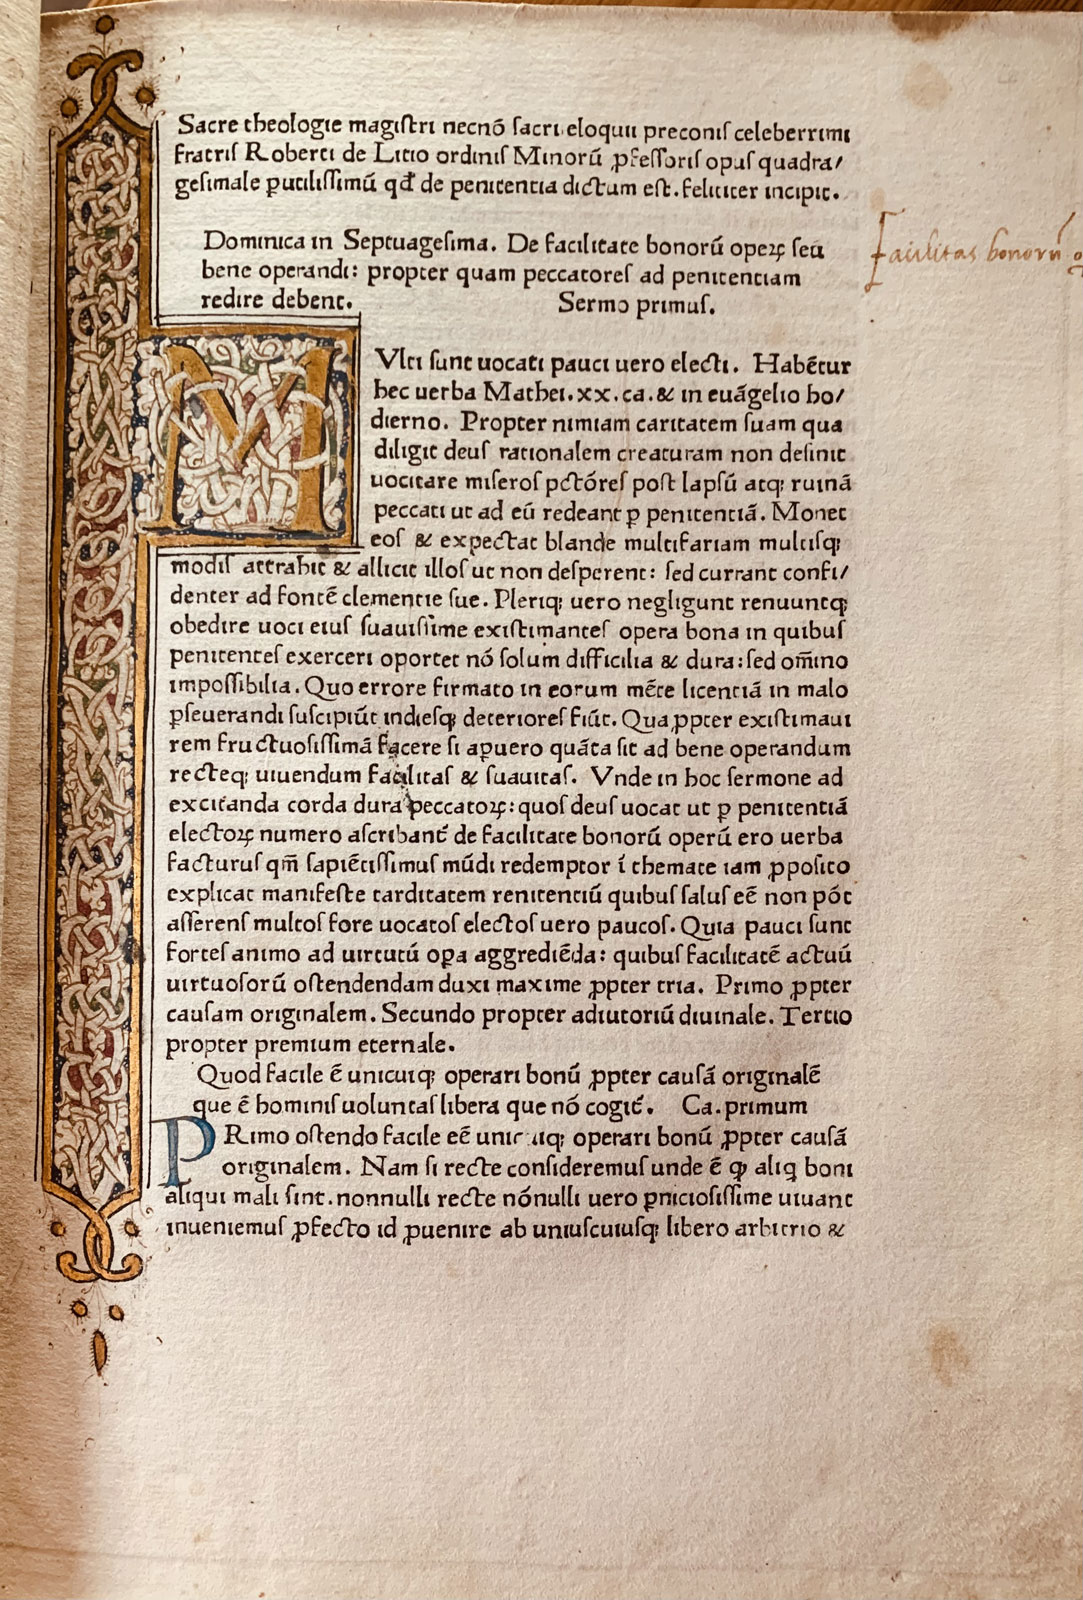 Sacre theologie magistri necnō sacri eloquii preconis celeberrimi
fratris Roberti de Litio ordinis Minorū ꝓfessoris opus quadra/
gesimale ꝑutilissimū qď de penitentia dictum est. feliciter incipit.
Dominica in Septuagesima. De facilitate bonorū operꝝ seu
bene operandi: propter quam peccatores ad penitentiam
redire debent. Sermo primus.
Facilitas bonorū
MVlti sunt uocati pauci uero electi. Habētur
hec uerba Mathei.xx.ca.& in euāgelio ho/
dierno. Propter nimiam caritatem suam qua
diligit deus rationalem creaturam non desinit
uocitare miseros pctōres post lapsū atq; ruinā
peccati ut ad eū redeant ꝑ penitentiā. Monet
eos & expectat blande multifariam multisq;
modis attrahit & allicit illos ut non desperent: sed currant confi/
denter ad fontē clementie sue. Pleriq; uero negligunt renuuntq;
obedire uoci eius suauissime existimantes opera bona in quibus
penitentes exerceri oportet nō solum difficilia & dura: sed om̄ino
impossibilia. Quo errore firmato in eorum mēte licentiā in malo
ꝑseuerandi suscipiūt indiesq; deteriores fiūt. Qua ꝓpter existimaui
rem fructuosissimā facere si aꝑuero quāta sit ad bene operandum
recteq; uiuendum facilitas & suauitas. Vnde in hoc sermone ad
excitanda corda dura peccatorꝝ: quos deus uocat ut ꝑ penitentiā
electorꝝ numero ascribant̄ de facilitate bonorū operū ero uerba
facturus qm̄ sapiētissimus mūdi redemptor ī themate iam ꝓposito
explicat manifeste tarditatem renitentiū quibus salus eē non pōt
asserens multos fore uocatos electos uero paucos. Quia pauci sunt
fortes animo ad uirtutū oꝑa aggrediēda: quibus facilitatē actuū
uirtuosorū ostendendam duxi maxime ꝓpter tria. Primo ꝓpter
causam originalem. Secundo propter adiutoriū diuinale. Tertio
propter premium eternale.
Quod facile ē unicuiq; operari bonū ꝓpter causā originalē
que ē hominis uoluntas libera que nō cogit̄. Ca.primum
PRimo ostendo facile eē unicuiq; operari bonū ꝓpter causā
originalem. Nam si recte consideremus unde ē ꝙ aliq̨ boni
aliqui mali sint. nonnulli recte nōnulli uero ꝑniciosissime uiuant
inueniemus ꝓfecto id ꝓuenire ab uniuscuiusq; libero arbitrio &